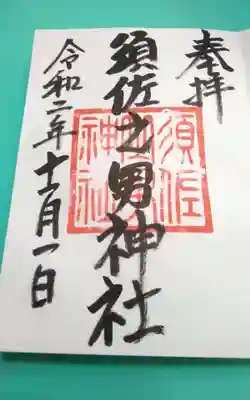 奉拝
須佐之男神社
須佐之男神社
令和二年十一月一日